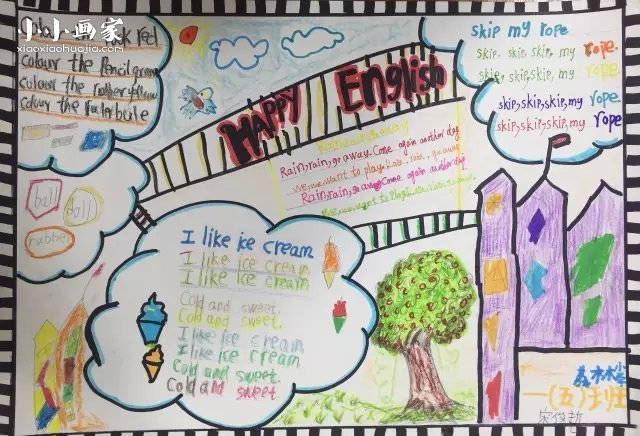 小小画家
xiaoxiaohuajia.com
colour the pencil green
colour the rubber yellow
colour the ruler blue
ball
doll
rubber
HAPPY English
Rain, rain, go away. Come again another day
we want to play. Rain, rain, go away
Rain, rain, go away. Come again another day
skip my rope
skip, skip, skip, my rope.
skip, skip, skip, my rope.
skip, skip, skip, my rope.
skip, skip, skip, my rope
I like ice cream
I like ice cream
I like ice cream
Cold and sweet.
Cold and sweet.
I like ice cream
I like ice cream
Cold and sweet
Cold and sweet
一(五)班
宋俊哲